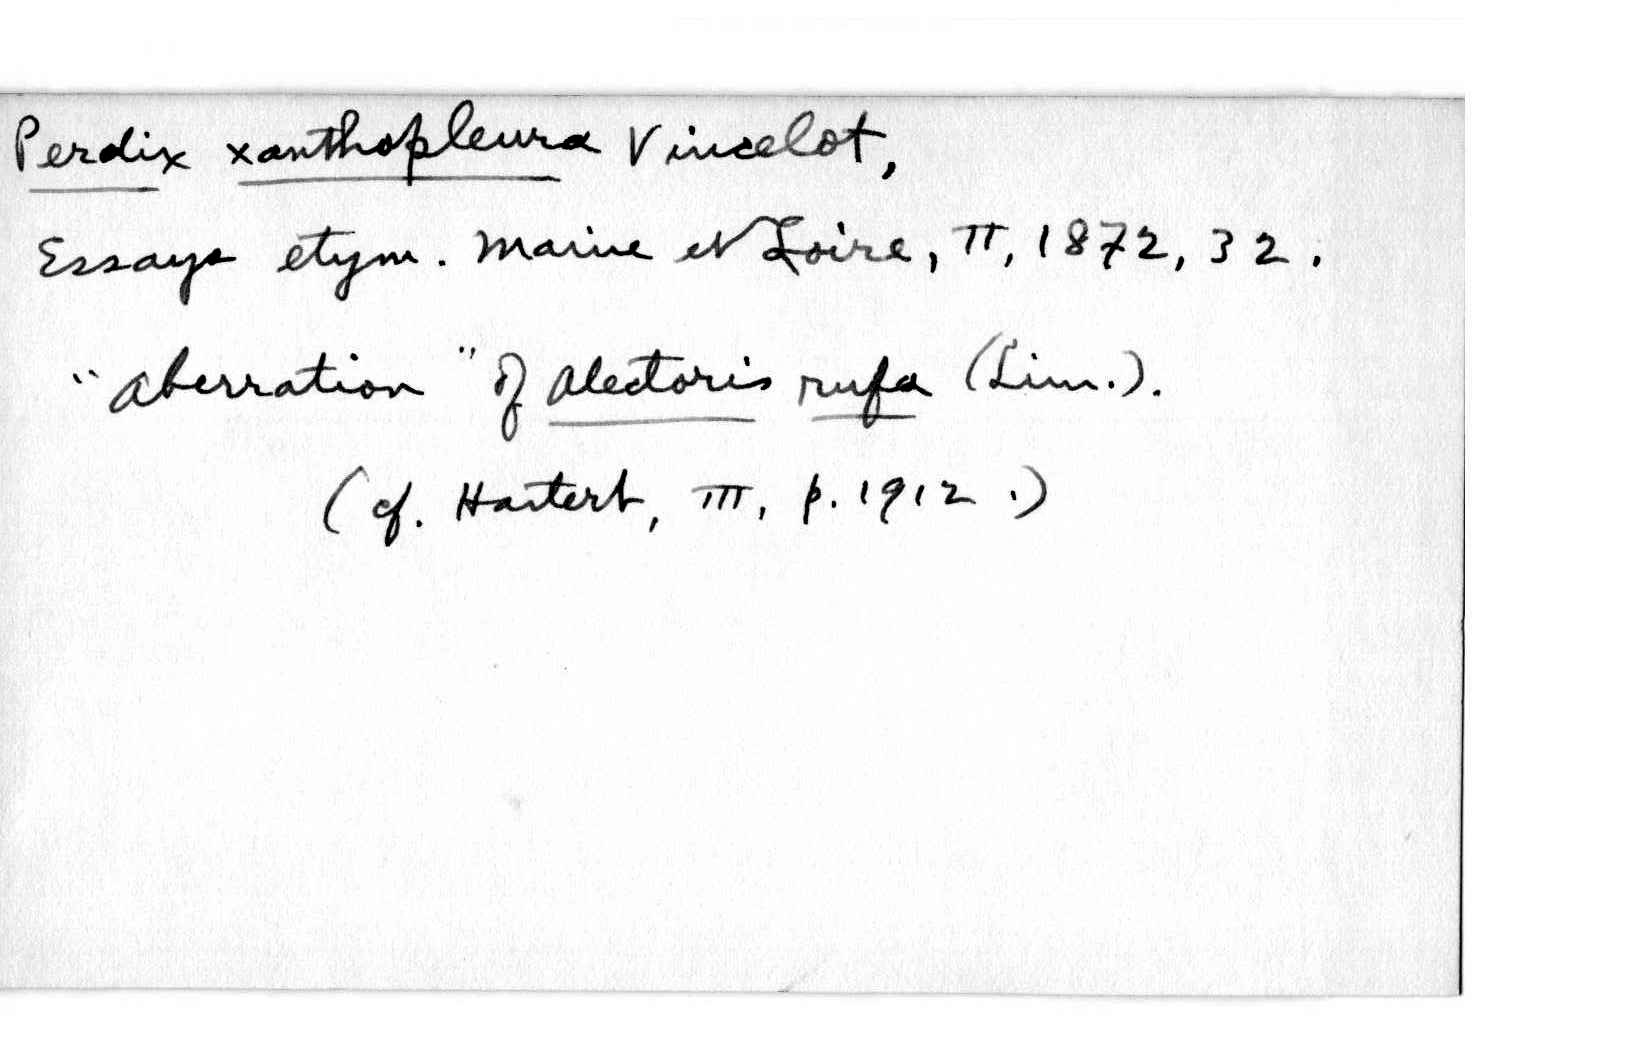 Perdix xanthopleura Vincelot,
Essays etym. Maine et Loire, II, 1872, 32.
"Aberration" of Alectoris rufa (Linn.).
(cf. Hartert, III, p. 1912.)